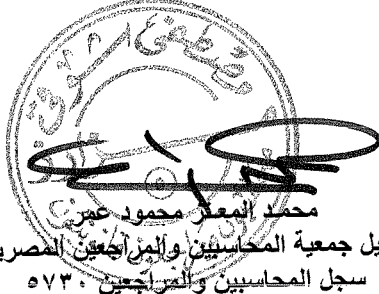 مصطفى شوقي
محمد المعتز محمود عمر
يل جمعية المحاسبين والمراجعين المصري
سجل المحاسبين والمراجعين ٥٧٣٠